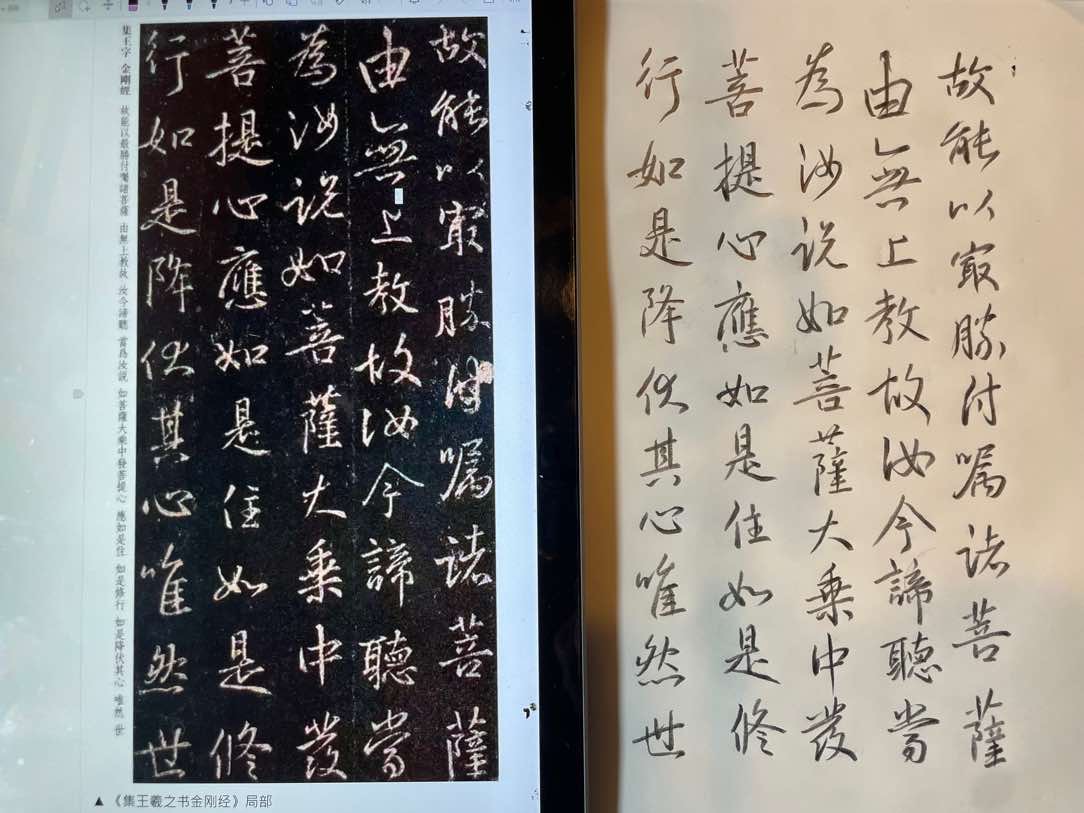 集王字 金剛經 故能以最勝付囑諸菩薩 由無上教故 汝今諦聽 當爲汝說 如菩薩大乘中發菩提心 應如是住 如是修行 如是降伏其心 唯然 世
故能以冣勝付嘱諸菩薩
由無上教故汝今諦聽當
為汝说如菩薩大乗中發
菩提心應如是住如是修
行如是降伏其心唯然世
▲《集王羲之书金刚经》局部
故能以冣勝付嘱諸菩薩
由無上教故汝今諦聽當
為汝说如菩薩大乗中發
菩提心應如是住如是修
行如是降伏其心唯然世